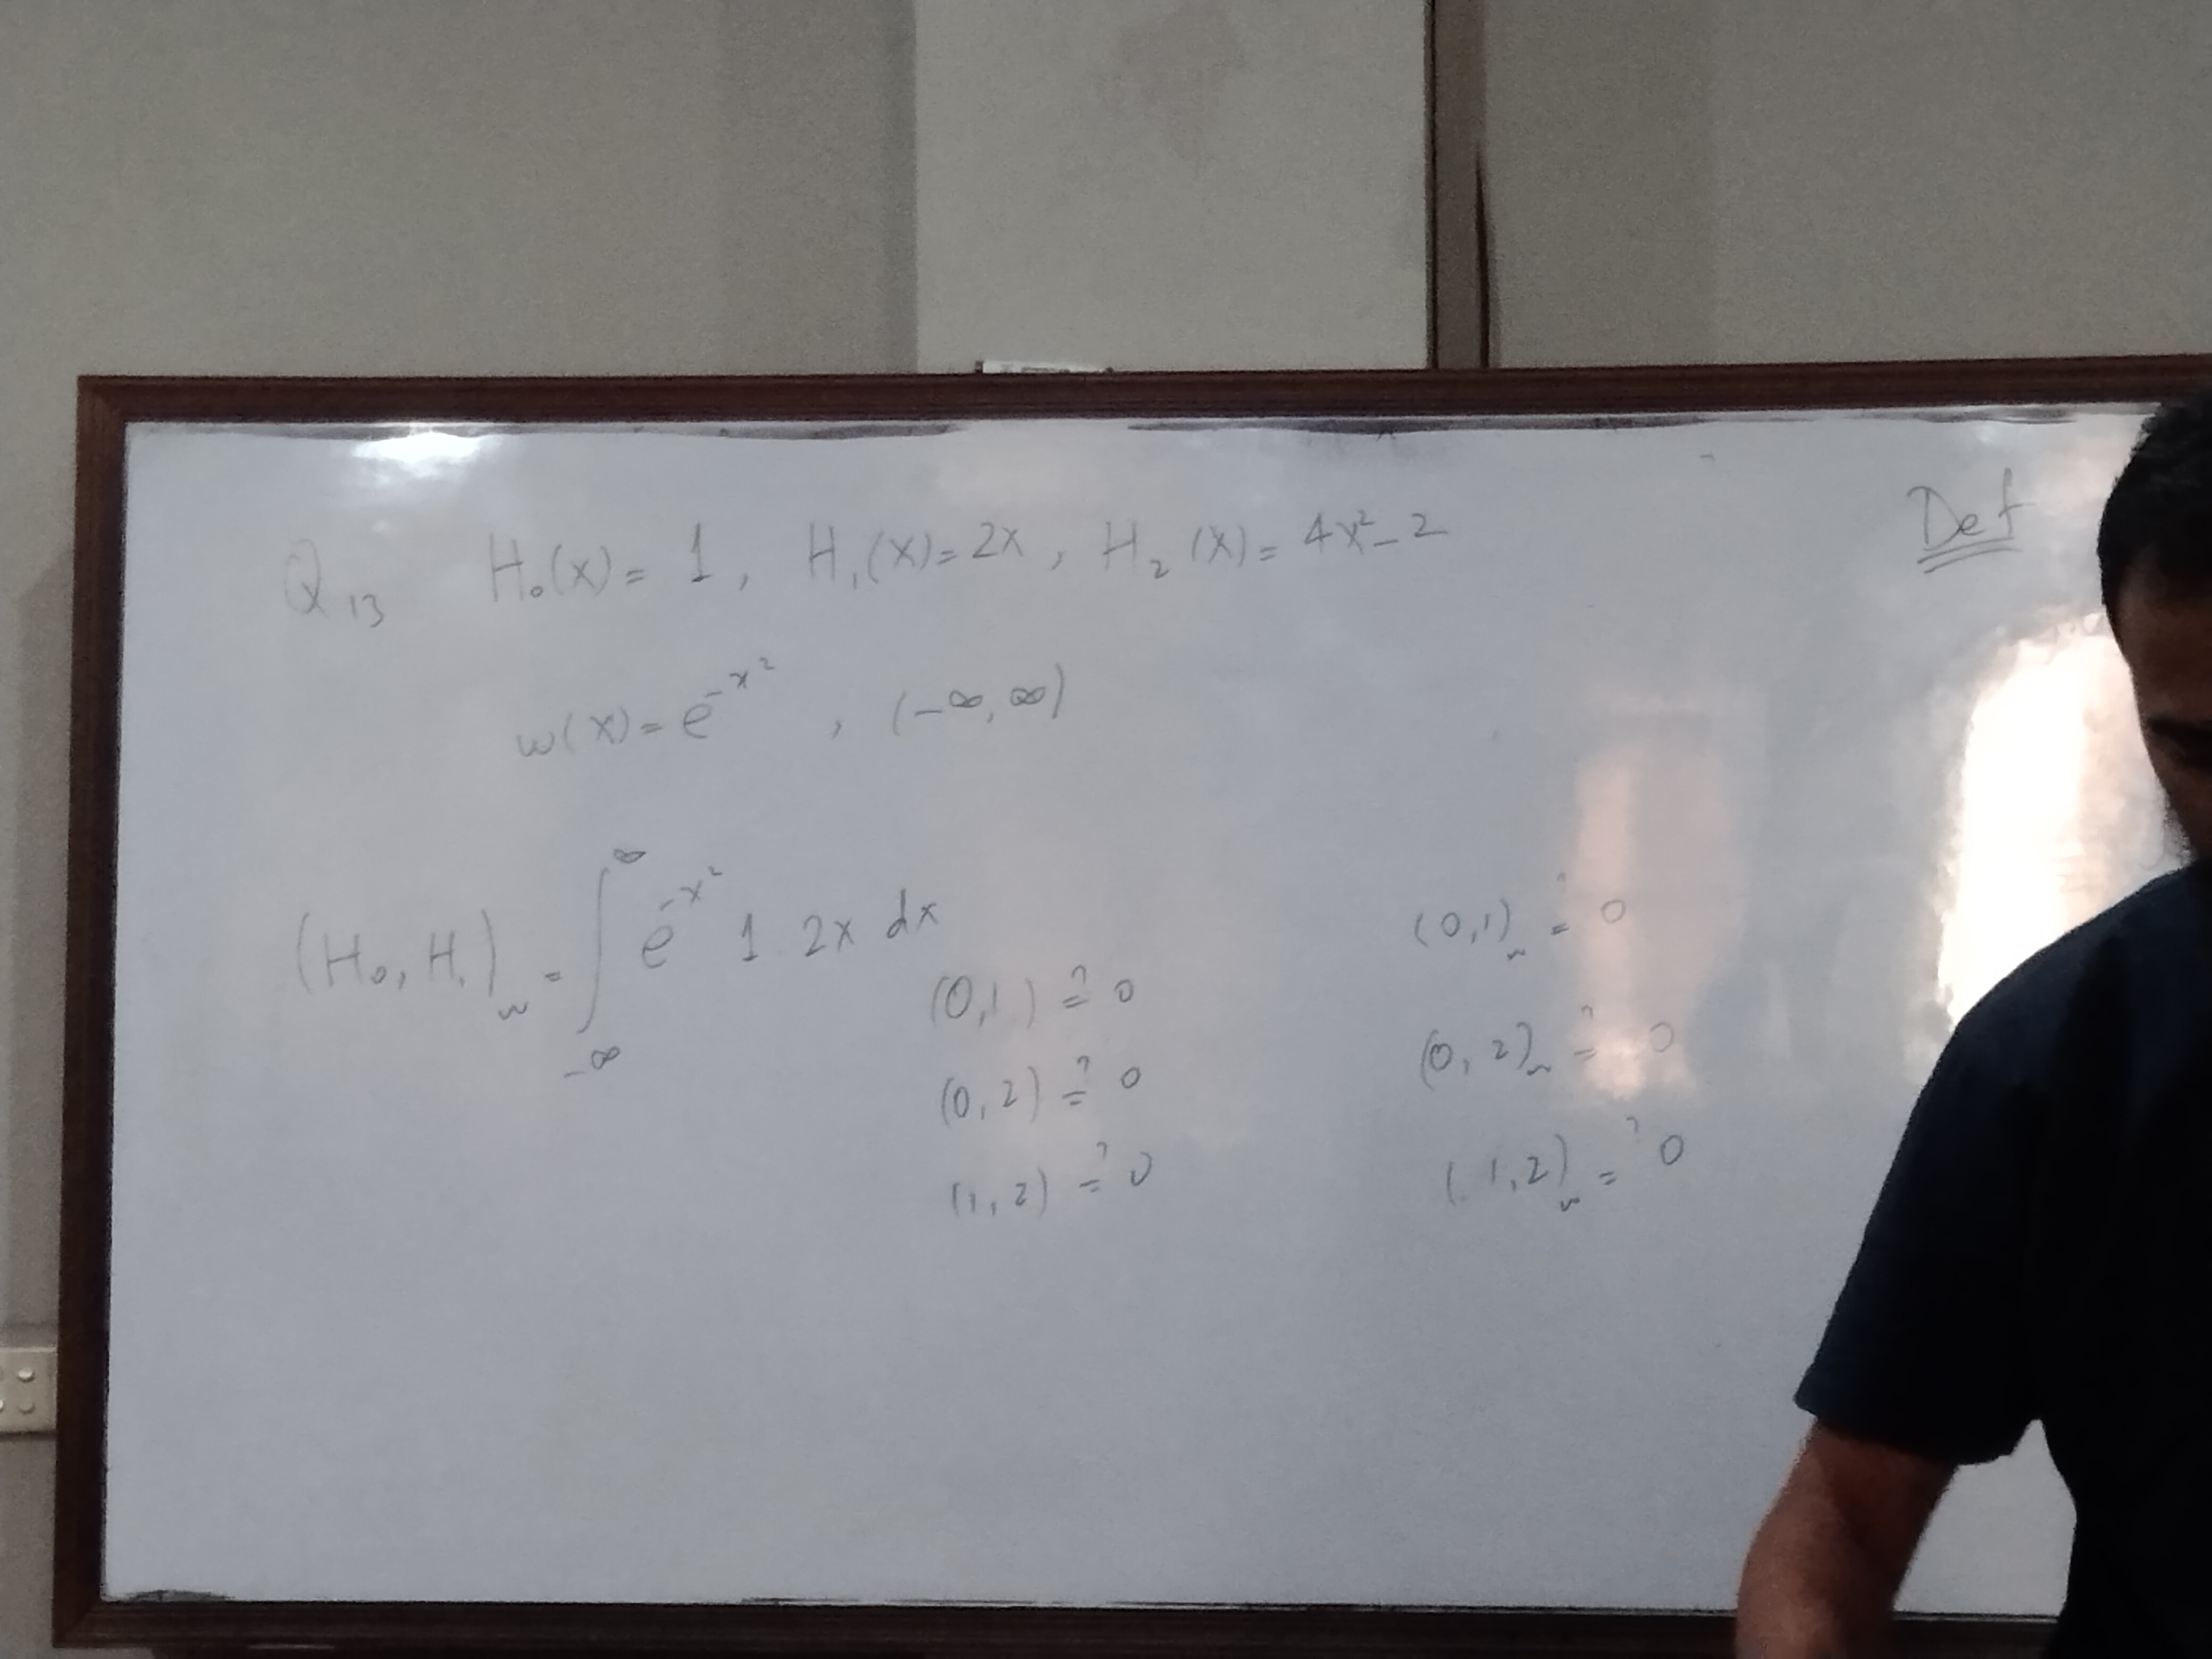 Q13 H₀(x) = 1, H₁(x) = 2x, H₂(x) = 4x² - 2
Def
w(x) = e^{-x²}, (-∞, ∞)
(H₀, H₁)_w = ∫_{-∞}^{∞} e^{-x²} 1. 2x dx
(0,1) ≟ 0
(0,2) ≟ 0
(1,2) ≟ 0
(0,1)_w ≟ 0
(0,2)_w ≟ 0
(1,2)_w ≟ 0